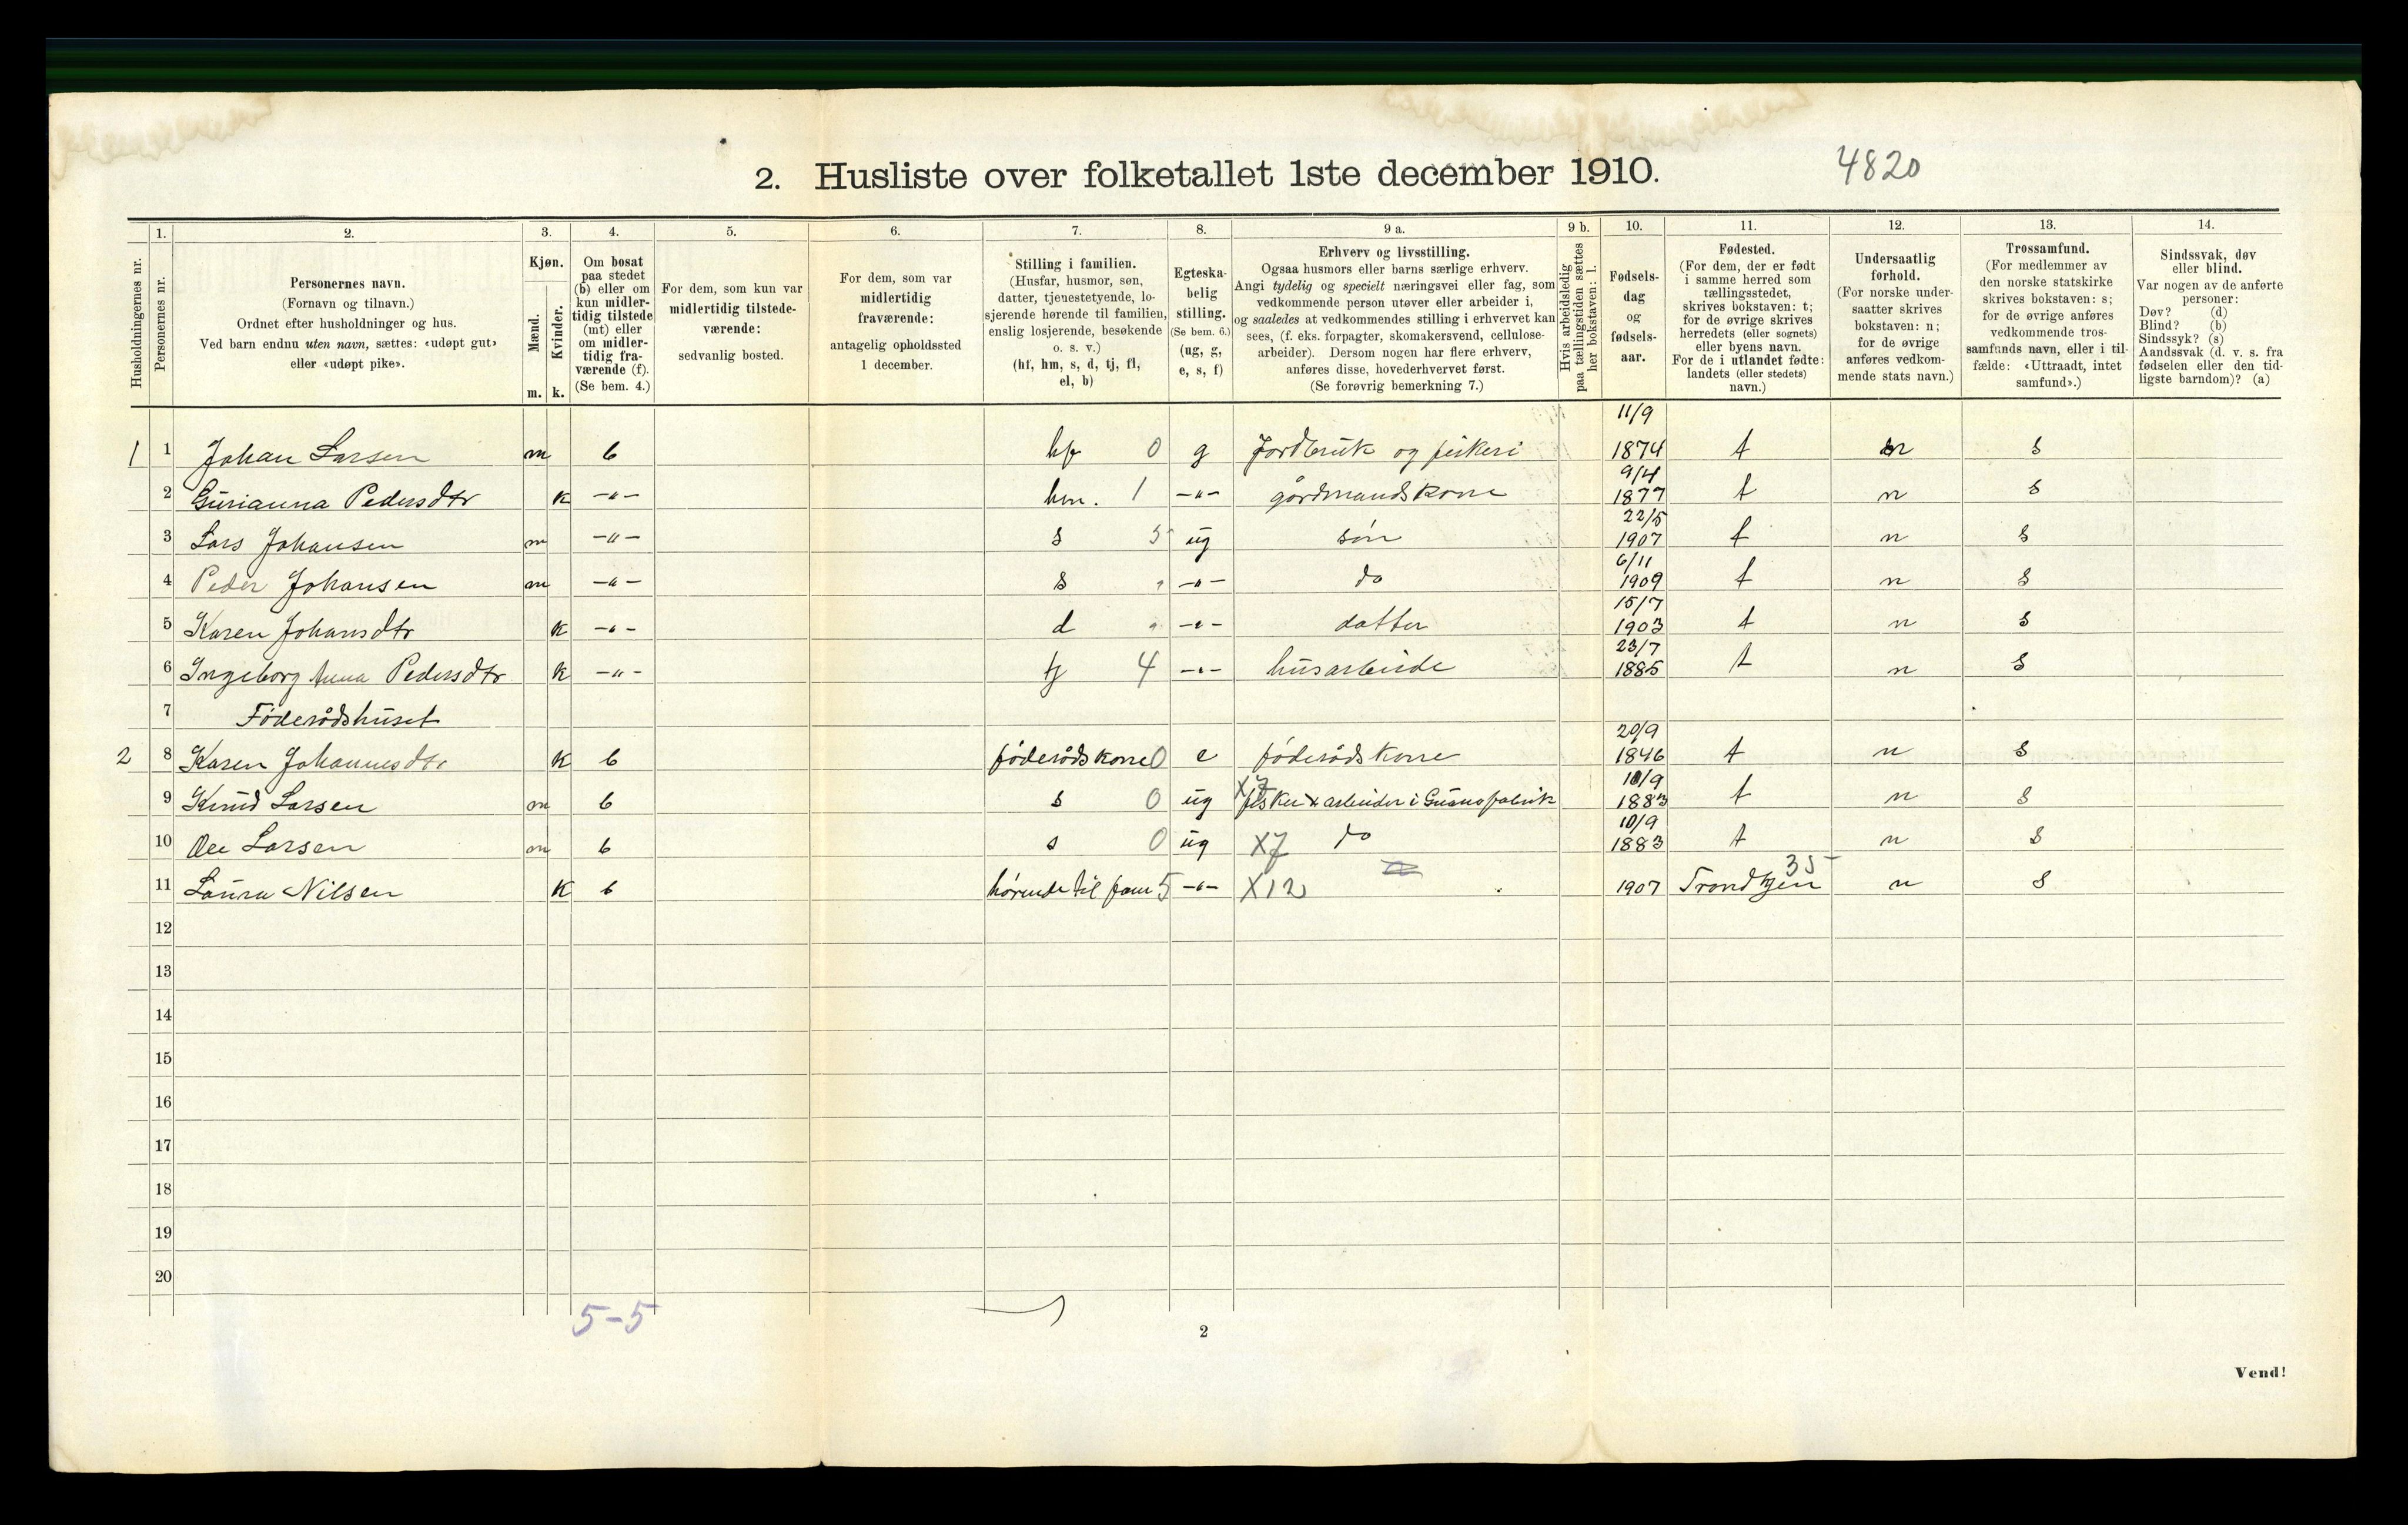 2. Husliste over folketallet 1ste december 1910.
4820
1. 2. 3. 4. 5. 6. 7. 8. 9 a. 9 b. 10. 11. 12. 13. 14.
Husholdningernes nr.
Personernes nr.
Personernes navn.
(Fornavn og tilnavn.)
Ordnet efter husholdninger og hus.
Ved barn endnu uten navn, sættes: «udøpt gut»
eller «udøpt pike».
Kjøn.
Mænd.
Kvinder.
m. k.
Om bosat
paa stedet
(b) eller om
kun midler-
tidig tilstede
(mt) eller
om midler-
tidig fra-
værende (f).
(Se bem. 4.)
For dem, som kun var
midlertidig tilstede-
værende:
sedvanlig bosted.
For dem, som var
midlertidig
fraværende:
antagelig opholdssted
1 december.
Stilling i familien.
(Husfar, husmor, søn,
datter, tjenestetyende, lo-
sjerende hørende til familien,
enslig losjerende, besøkende
o. s. v.)
(hf, hm, s, d, tj, fl,
el, b)
Egteska-
belig
stilling.
(Se bem. 6.)
(ug, g,
e, s, f)
Erhverv og livsstilling.
Ogsaa husmors eller barns særlige erhverv.
Angi tydelig og specielt næringsvei eller fag, som
vedkommende person utøver eller arbeider i,
og saaledes at vedkommendes stilling i erhvervet kan
sees, (f. eks. forpagter, skomakersvend, cellulose-
arbeider). Dersom nogen har flere erhverv,
anføres disse, hovederhvervet først.
(Se forøvrig bemerkning 7.)
Hvis arbeidsledig
paa tællingstiden sættes
her bokstaven: l.
Fødsels-
dag
og
fødsels-
aar.
Fødested.
(For dem, der er født
i samme herred som
tællingsstedet,
skrives bokstaven: t;
for de øvrige skrives
herredets (eller sognets)
eller byens navn.
For de i utlandet fødte:
landets (eller stedets)
navn.)
Undersaatlig
forhold.
(For norske under-
saatter skrives
bokstaven: n;
for de øvrige
anføres vedkom-
mende stats navn.)
Trossamfund.
(For medlemmer av
den norske statskirke
skrives bokstaven: s;
for de øvrige anføres
vedkommende tros-
samfunds navn, eller i til-
fælde: «Uttraadt, intet
samfund».)
Sindssvak, døv
eller blind.
Var nogen av de anførte
personer:
Døv? (d)
Blind? (b)
Sindssyk? (s)
Aandssvak (d. v. s. fra
fødselen eller den tid-
ligste barndom)? (a)
1 1 Johan Larsen m b hf 0 g Jordbruk og fiskeri 11/9 1874 t n s
2 Gurianna Pedersdtr k -"- hm. 1 -"- gårdmandskone 9/4 1877 t n s
3 Lars Johansen m -"- s 5 ug søn 22/5 1907 t n s
4 Peder Johansen m -"- s " -"- do 6/11 1909 t n s
5 Karen Johansdtr k -"- d " -"- datter 15/7 1903 t n s
6 Ingeborg Anna Pedersdtr k -"- tj 4 -"- husarbeide 23/7 1885 t n s
7 Føderådshuset
2 8 Karen Johannesdtr k b føderådskone 0 e føderådskone 20/9 1846 t n s
9 Knud Larsen m b s 0 ug X7 fisker & arbeider i Guanofabrik 10/9 1883 t n s
10 Ole Larsen m b s 0 ug X7 do 10/9 1883 t n s
11 Laura Nilsen k b hørende til fam 5 -"- X12 1907 Trondhjem 35 n s
12
13
14
15
16
17
18
19
20
5-5
2
Vend!